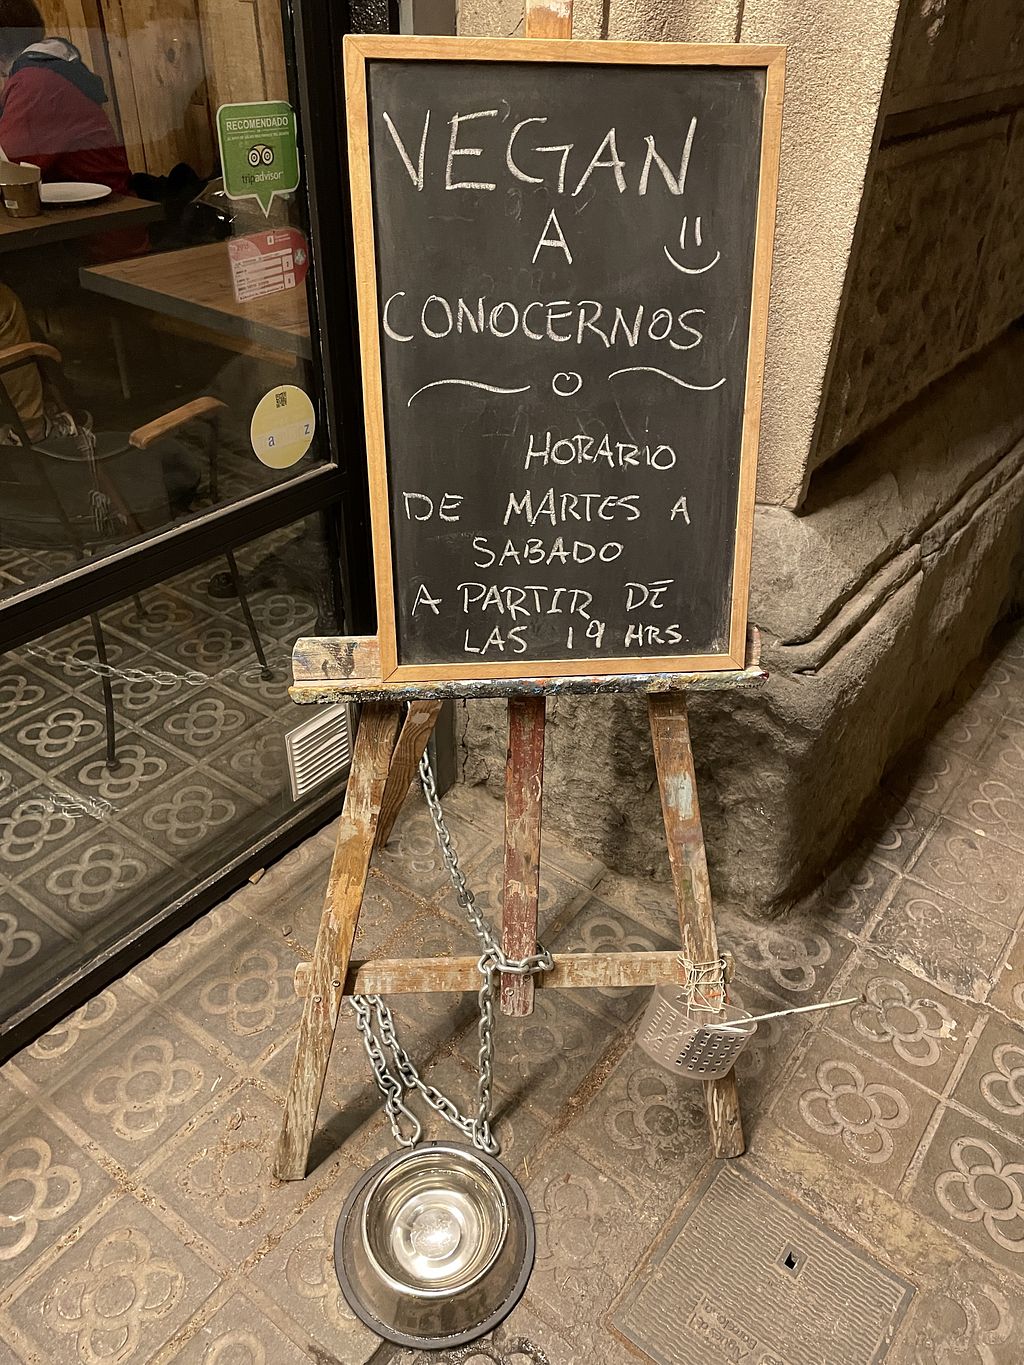 VEGAN
A
CONOCERNOS
HORARIO
DE MARTES A
SABADO
A PARTIR DE
LAS 19 HRS.
RECOMENDADO
tripadvisor